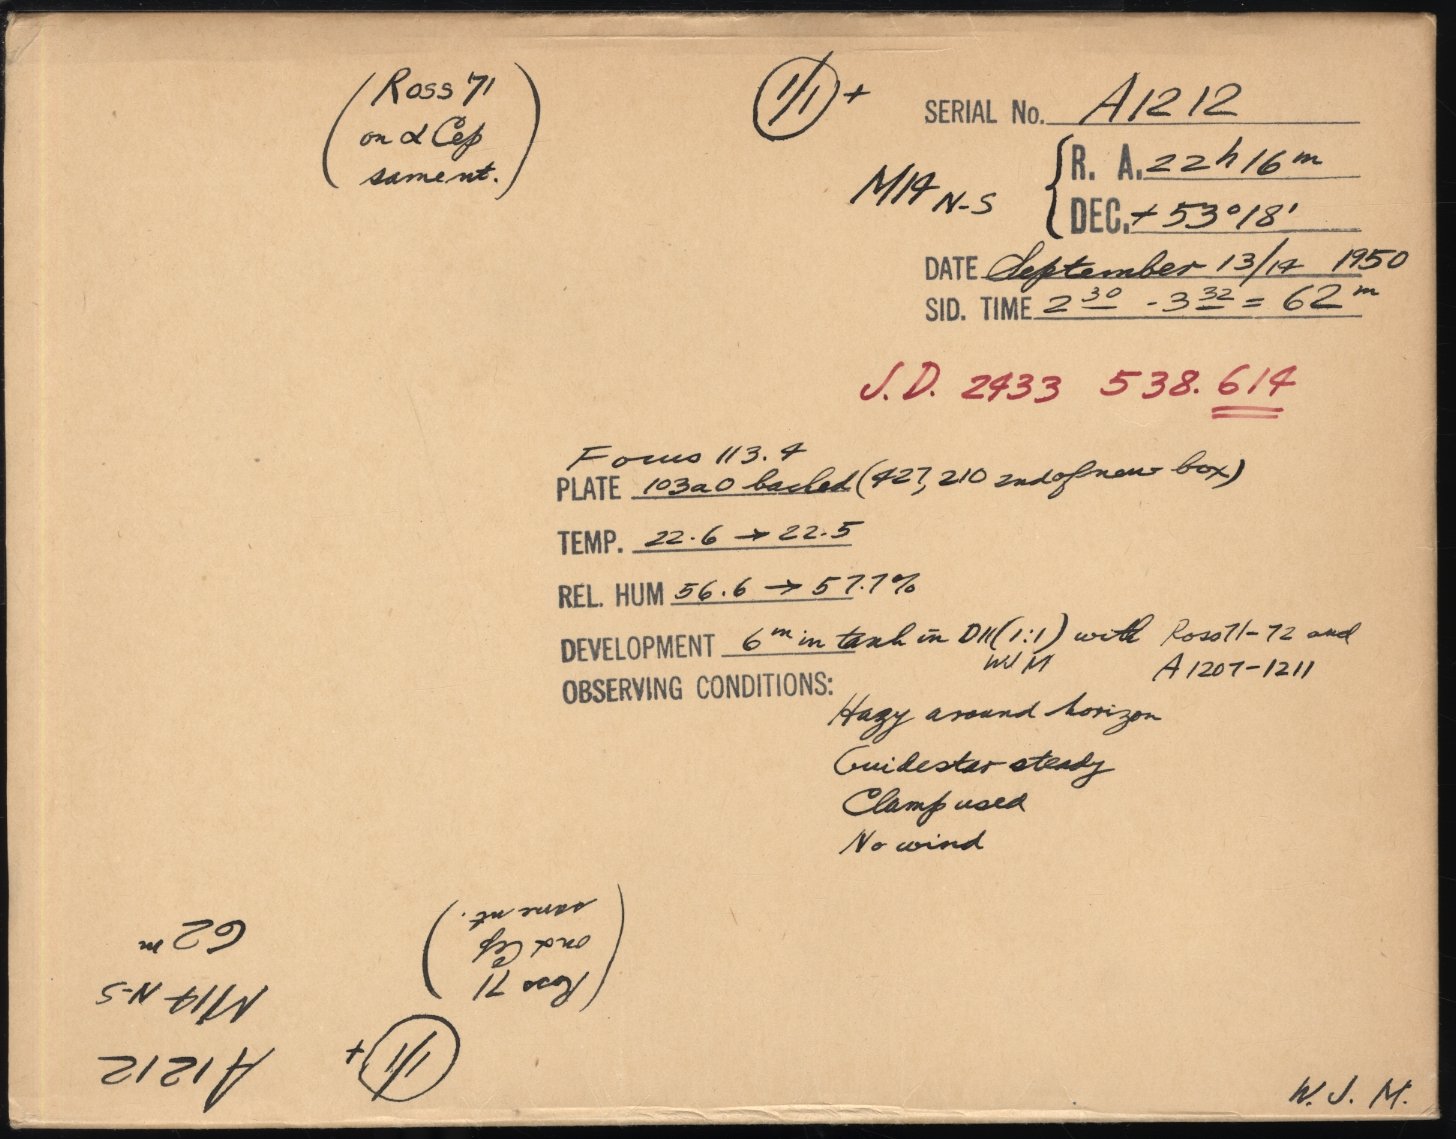 (Ross 71
on α Cep
same nt.)
1/1 +
SERIAL No. A1212
M14 N-S
R. A. 22h 16m
DEC. +53°18'
DATE September 13/14 1950
SID. TIME 2 30 - 3 32 = 62m
J.D. 2433 538.614
Focus 113.4
PLATE 103aO backed (427, 210 2nd of new box)
TEMP. 22.6 → 22.5
REL. HUM 56.6 → 57.7%
DEVELOPMENT 6m in tank in D11(1:1) with Ross71-72 and
WJM A1207-1211
OBSERVING CONDITIONS:
Hazy around horizon
Guidestar steady
Clamp used
No wind
W. J. M.
A1212
M14 N-S
62m
1/1 +
(Ross 71
on α Cep
same nt.)